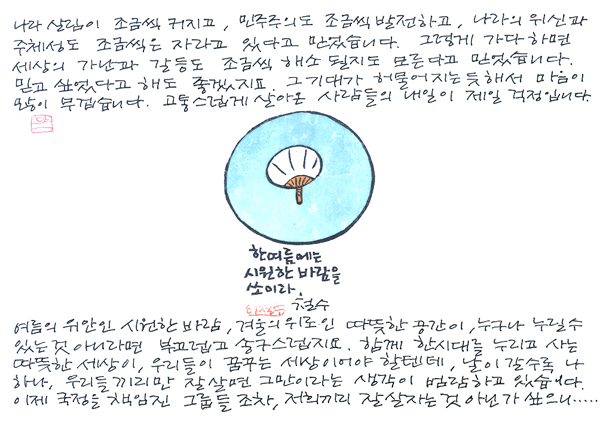 나라 살림이 조금씩 커지고, 민주주의도 조금씩 발전하고, 나라의 위신과
주체성도 조금씩은 자라고 있다고 믿었습니다. 그렇게 가다 하면
세상의 가난과 갈등도 조금씩 해소 될지도 모른다고 믿었습니다.
믿고 싶었다고 해도 좋겠지요. 그 기대가 허물어지는 듯해서 마음이
많이 무겁습니다. 고통스럽게 살아온 사람들의 내일이 제일 걱정입니다.
한여름에는
시원한 바람을
쏘이라.
철수
여름의 위안인 시원한 바람, 겨울의 위로인 따뜻한 공간이, 누구나 누릴수
있는 것 아니라면 부끄럽고 송구스럽지요. 함께 한시대를 누리고 사는
따뜻한 세상이, 우리들이 꿈꾸는 세상이어야 할텐데, 날이 갈수록 나
하나, 우리들끼리만 잘살면 그만이라는 생각이 범람하고 있습니다.
이제 국정을 책임진 그룹들 조차, 저희끼리 잘살자는 것 아닌가 싶으니.....